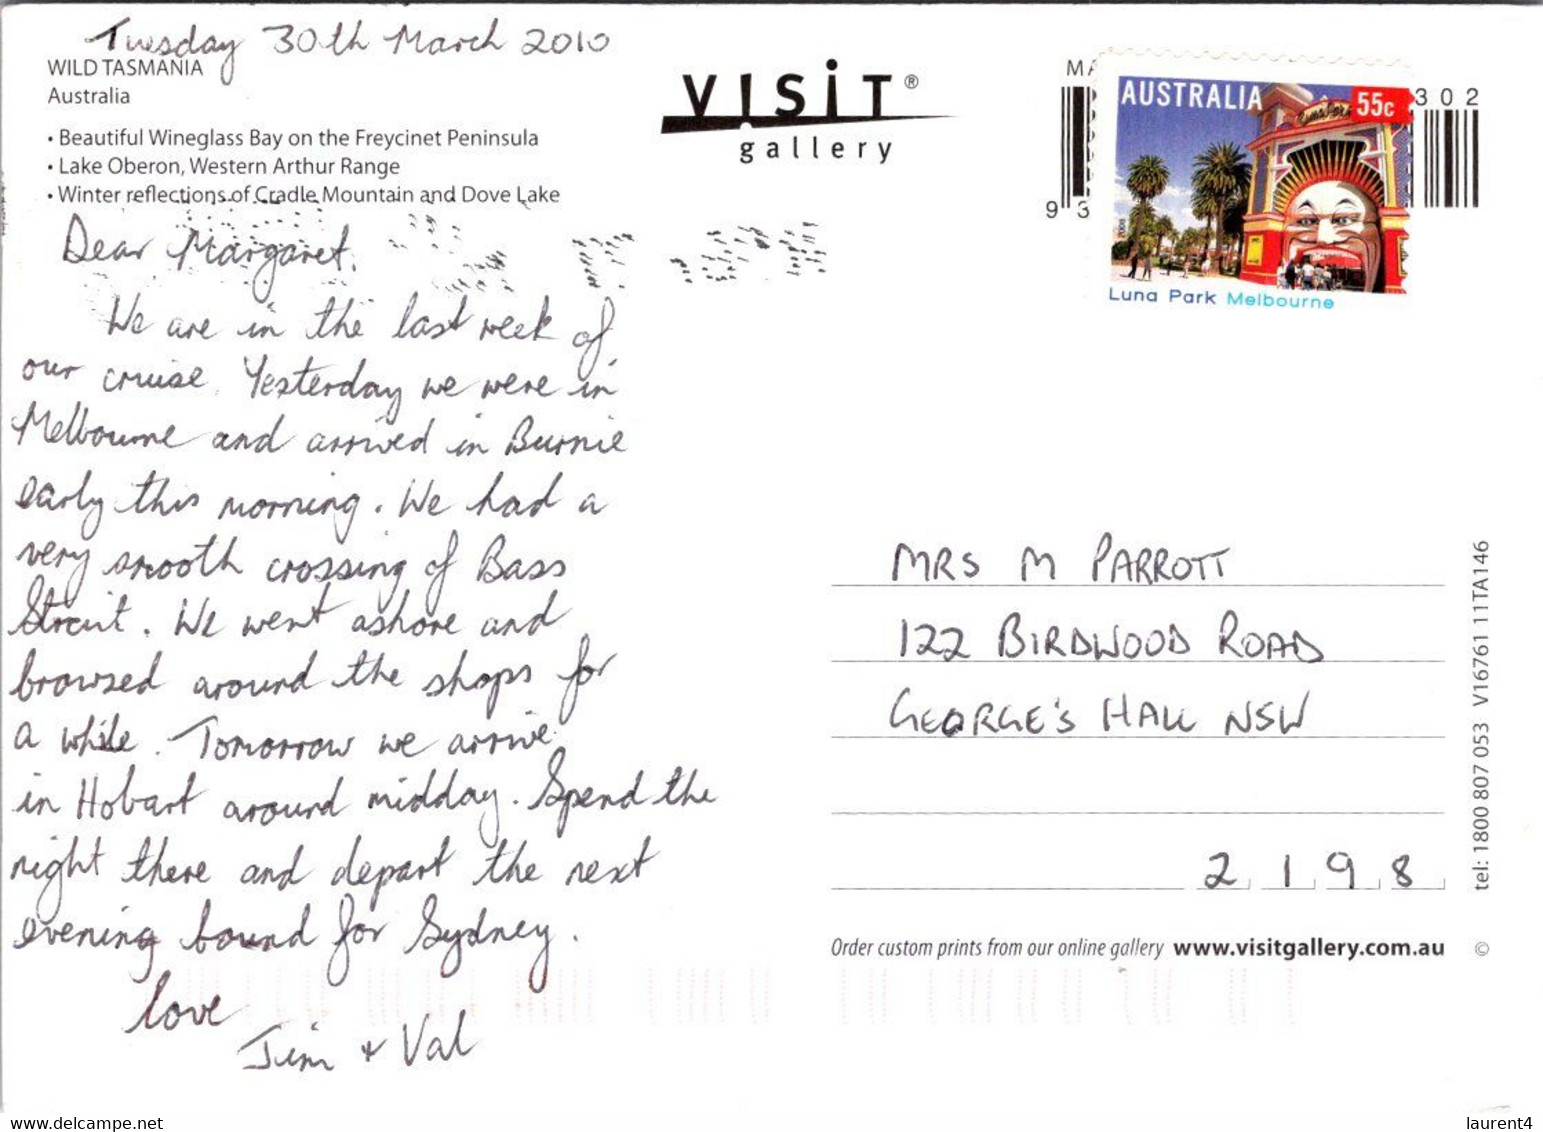 Tuesday 30th March 2010
WILD TASMANIA
Australia
• Beautiful Wineglass Bay on the Freycinet Peninsula
• Lake Oberon, Western Arthur Range
• Winter reflections of Cradle Mountain and Dove Lake
Dear Margaret,
We are in the last week of
our cruise. Yesterday we were in
Melbourne and arrived in Burnie
early this morning. We had a
very smooth crossing of Bass
Strait. We went ashore and
browsed around the shops for
a while. Tomorrow we arrive
in Hobart around midday. Spend the
night there and depart the next
evening bound for Sydney.
love
Jim + Val
VISIT®
gallery
MA
9 3
302
AUSTRALIA
55c
Luna Park
2008
Luna Park Melbourne
MRS M PARROTT
122 BIRDWOOD ROAD
GEORGE'S HALL NSW
2198
Order custom prints from our online gallery www.visitgallery.com.au ©
tel: 1800 807 053 V16761 11TA146
www.delcampe.net
laurent4